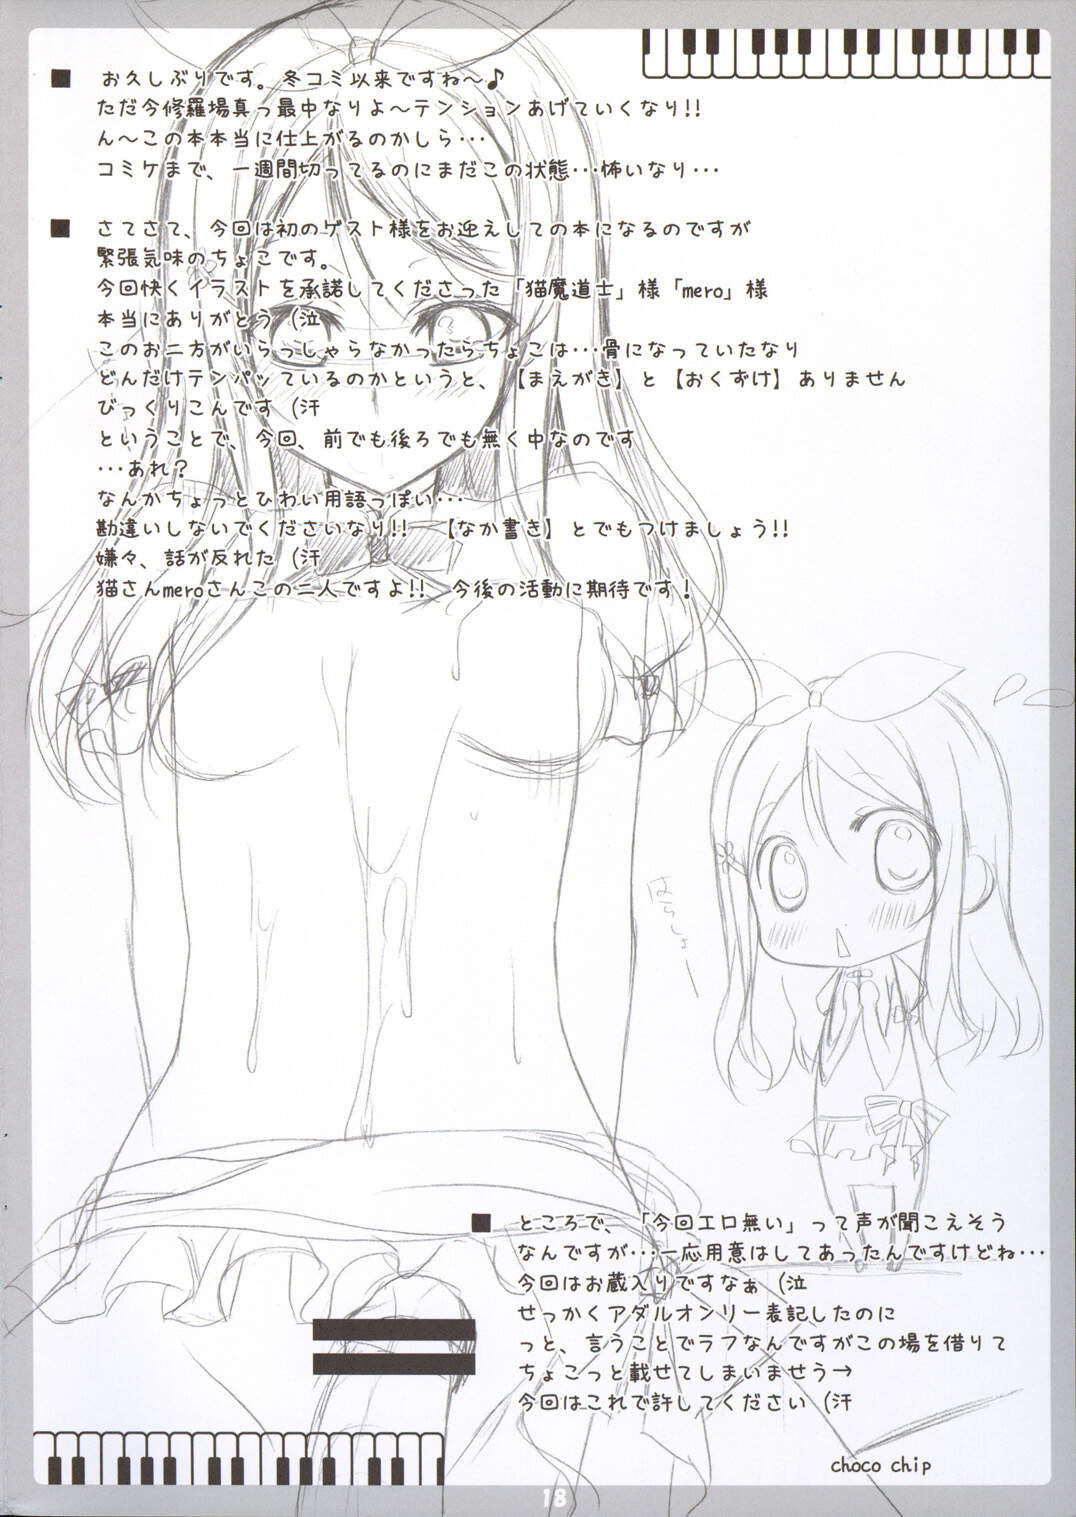 ■ お久しぶりです。冬コミ以来ですね～♪
ただ今修羅場真っ最中なりよ～テンションあげていくなり!!
ん～この本本当に仕上がるのかしら･･･
コミケまで、一週間切ってるのにまだこの状態･･･怖いなり･･･
■ さてさて、今回は初のゲスト様をお迎えしての本になるのですが
緊張気味のちょこです。
今回快くイラストを承諾してくださった「猫魔道士」様「mero」様
本当にありがとう（泣
このお二方がいらっしゃらなかったらちょこは･･･骨になっていたなり
どんだけテンパッているのかというと、【まえがき】と【おくずけ】ありません
びっくりこんです（汗
ということで、今回、前でも後ろでも無く中なのです
･･･あれ？
なんかちょっとひわい用語っぽい･･･
勘違いしないでくださいなり!! 【なか書き】とでもつけましょう!!
嫌々、話が反れた（汗
猫さんmeroさんこの二人ですよ!! 今後の活動に期待です！
はらしょー
■ ところで、「今回エロ無い」って声が聞こえそう
なんですが･･･一応用意はしてあったんですけどね･･･
今回はお蔵入りですなぁ（泣
せっかくアダルオンリー表記したのに
っと、言うことでラフなんですがこの場を借りて
ちょこっと載せてしまいませう→
今回はこれで許してください（汗
choco chip
18